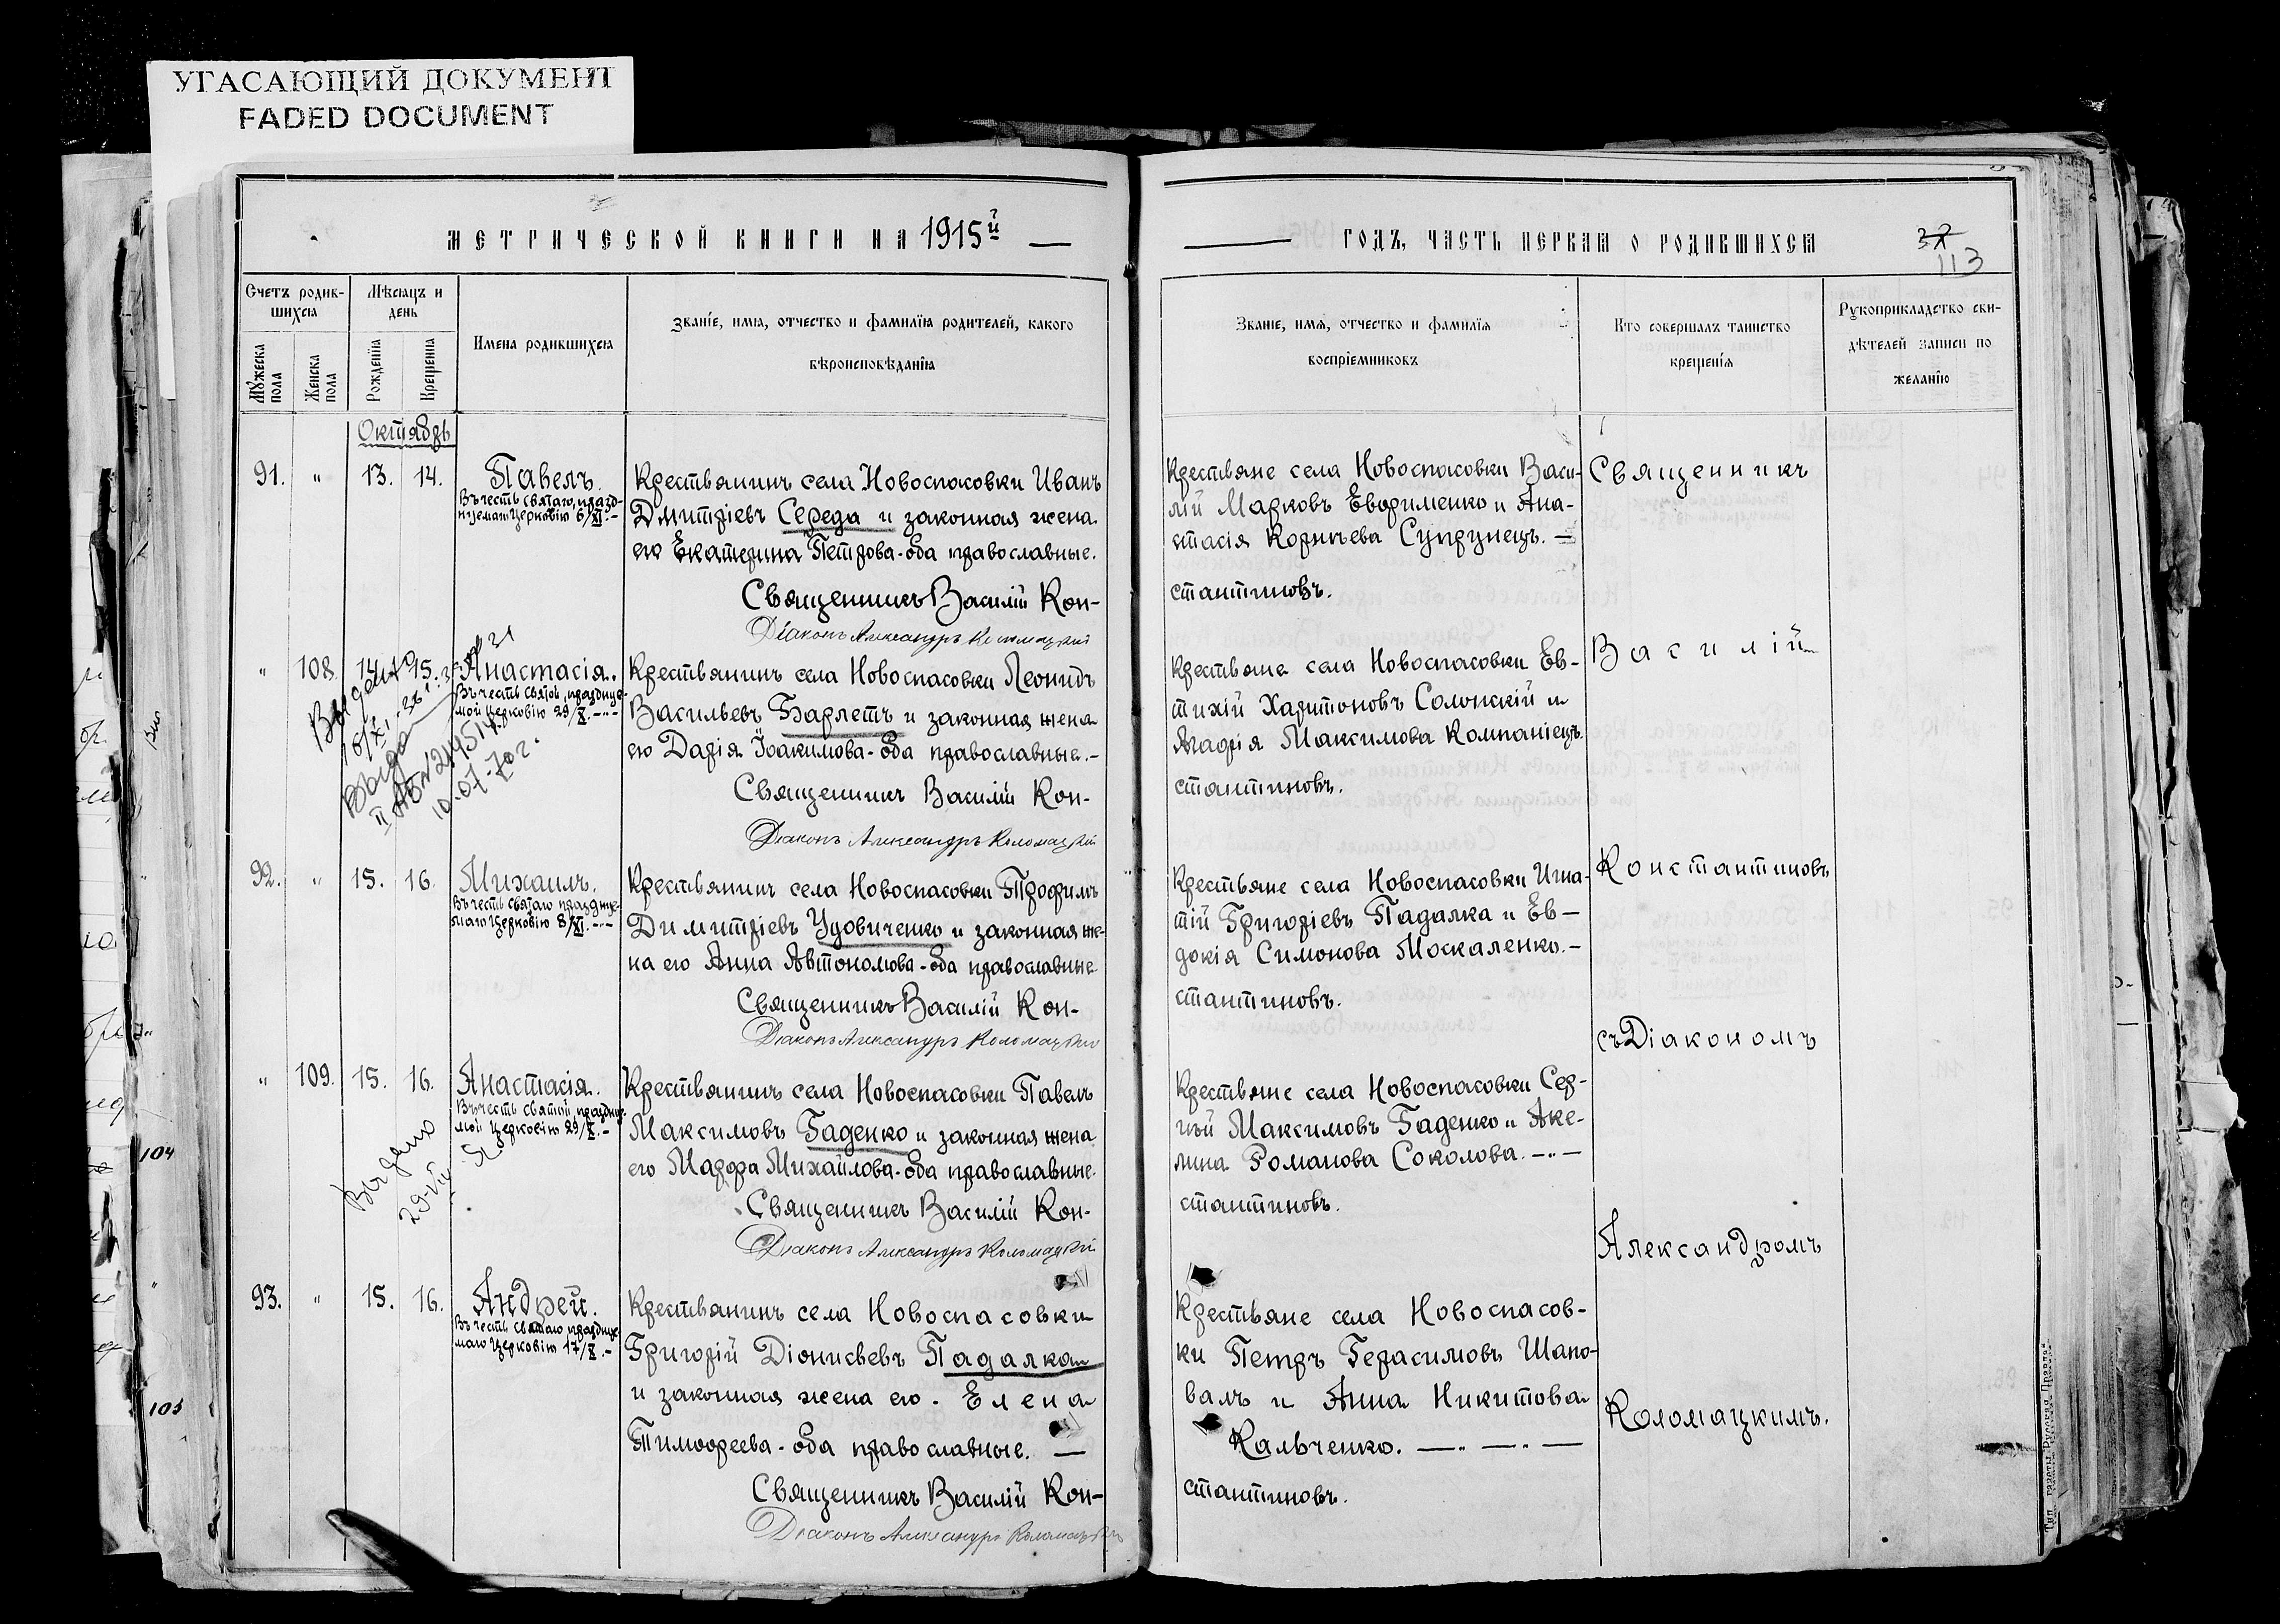 УГАСАЮЩИЙ ДОКУМЕНТ
FADED DOCUMENT
МЕТРИЧЕСКОЙ КНИГИ НА 1915й
Счетъ родив-
шихся
Мужеска пола
Женска пола
Мѣсяцъ и
день
Рожденія
Крещенія
Имена родившихся
Званіе, имя, отчество и фамилія родителей, какого
вѣроисповѣданія
Октябрь
91. " 13. 14. Павелъ.
Въ честь святаго, празд-
нуемаго Церковію 6/XI. –
Крестьянинъ села Новоспасовки Иванъ
Дмитріевъ Середа и законная жена
его Екатерина Петрова - оба православные.
Священникъ Василій Кон-
Діаконъ Александръ Коломацкій
" 108. 14. 15. Анастасія.
Въ честь святой, праздnуе-
мой Церковію 29/X. –
Выдана
10.07-70 г.
Крестьянинъ села Новоспасовки Леонидъ
Васильевъ Барлетъ и законная жена
его Дарія Іоакимова - оба православные. –
Священникъ Василій Кон-
Діаконъ Александръ Коломацкій
92. " 15. 16. Михаилъ.
Въ честь святаго праздnуе-
маго Церковію 8/XI. –
Крестьянинъ села Новоспасовки Трофимъ
Димитріевъ Удовиченко и законная же-
на его Анна Автономова - оба православные
Священникъ Василій Кон-
Діаконъ Александръ Коломацкій
" 109. 15. 16. Анастасія.
Въ честь святой, праздnуе-
мой Церковію 29/X. –
Выдано
29-VII
Крестьянинъ села Новоспасовки Павелъ
Максимовъ Гаденко и законная жена
его Марфа Михайлова - оба православные.
Священникъ Василій Кон-
Діаконъ Александръ Коломацкій
93. " 15. 16. Андрей.
Въ честь святаго праздnуе-
маго Церковію 17/X. –
Крестьянинъ села Новоспасовки
Григорій Діонисьевъ Падалка
и законная жена его. Елена
Тимофеева - оба православные. —
Священникъ Василій Кон-
Діаконъ Александръ Коломацкій
104
105
ГОДЪ, ЧАСТЬ ПЕРВАЯ О РОДИВШИХСЯ
37
113
Званіе, имя, отчество и фамилія
воспріемниковъ
Кто совершалъ таинство
крещенія
Рукоприкладство сви-
дѣтелей записи по
желанію
Крестьяне села Новоспасовки Васи-
лій Марковъ Ефименко и Ана-
стасія Корнѣева Супрунецъ. –
стантиновъ.
Крестьяне села Новоспасовки Ев-
тихій Харитоновъ Солонскій и
Агафія Максимова Компаніецъ
стантиновъ.
Крестьяне села Новоспасовки Игна-
тій Григоріевъ Падалка и Ев-
докія Симонова Москаленко. –
стантиновъ.
Крестьяне села Новоспасовки Сер-
гѣй Максимовъ Гаденко и Аке-
лина Романова Соколова. –
стантиновъ.
Крестьяне села Новоспасов-
ки Петръ Герасимовъ Шапо-
валъ и Анна Никитова
Кальченко. —
стантиновъ.
Священникъ
Василій
Константиновъ
съ Діакономъ
Александромъ
Коломацкимъ.
Тип. газеты „Русская Правда“